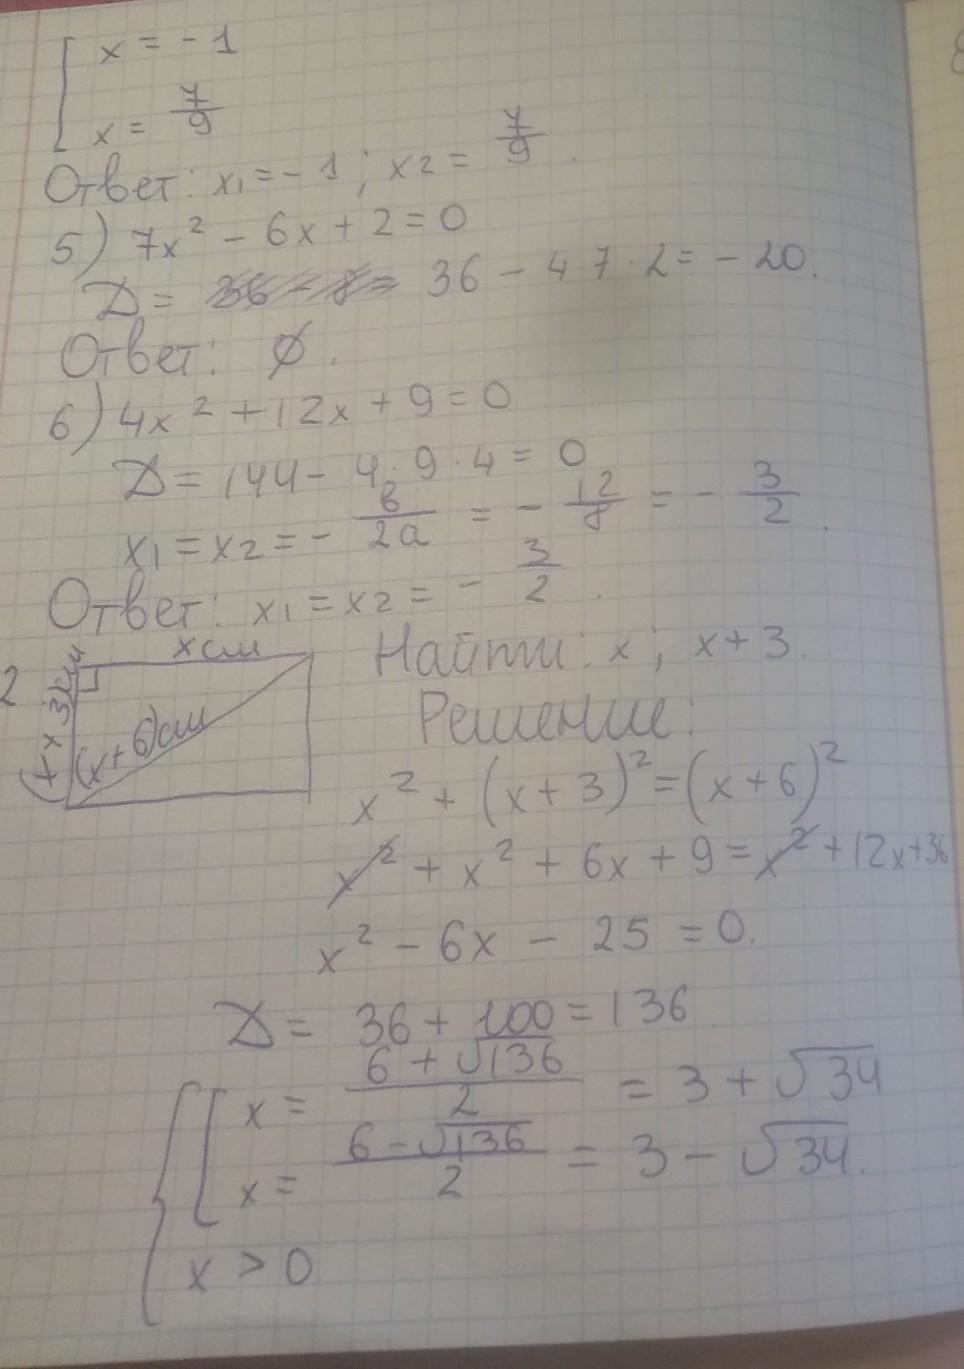 x = - 1
x = 7/9
Ответ: x₁ = - 1 ; x₂ = 7/9 .
5) 7x² - 6x + 2 = 0
D = 36 - 4·7·2 = - 20.
Ответ: ∅.
6) 4x² + 12x + 9 = 0
D = 144 - 4·9·4 = 0
x₁ = x₂ = - в/2а = - 12/8 = - 3/2 .
Ответ: x₁ = x₂ = - 3/2 .
2
x см
(x+6)см
Найти: x ; x + 3.
Решение:
x² + (x + 3)² = (x + 6)²
x² + x² + 6x + 9 = x² + 12x + 36
x² - 6x - 25 = 0.
D = 36 + 100 = 136
x = (6 + √136)/2 = 3 + √34
x = (6 - √136)/2 = 3 - √34.
x > 0